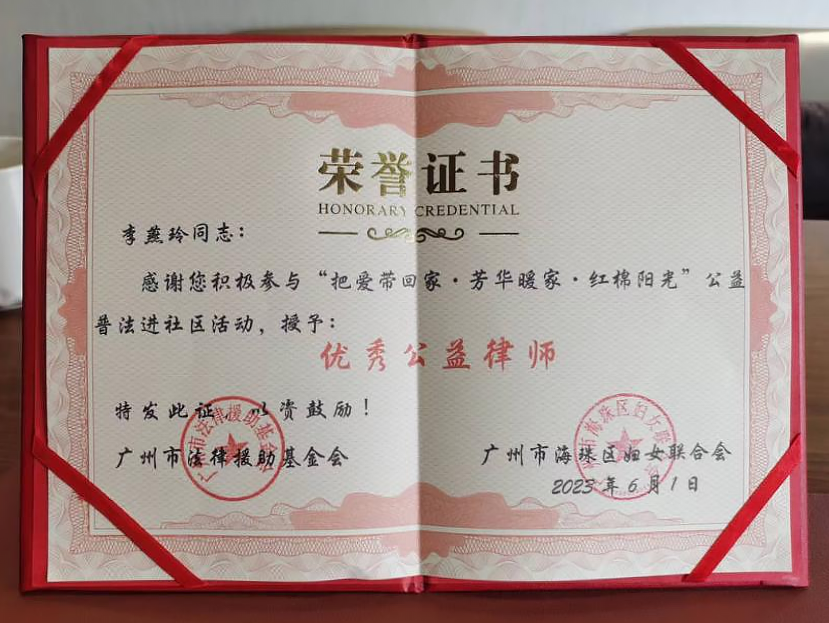 荣誉证书
HONORARY CREDENTIAL
李燕玲同志：
感谢您积极参与“把爱带回家·芳华暖家·红棉阳光”公益
普法进社区活动，授予：
优秀公益律师
特发此证，以资鼓励！
广州市法律援助基金会
广州市海珠区妇女联合会
2023年6月1日